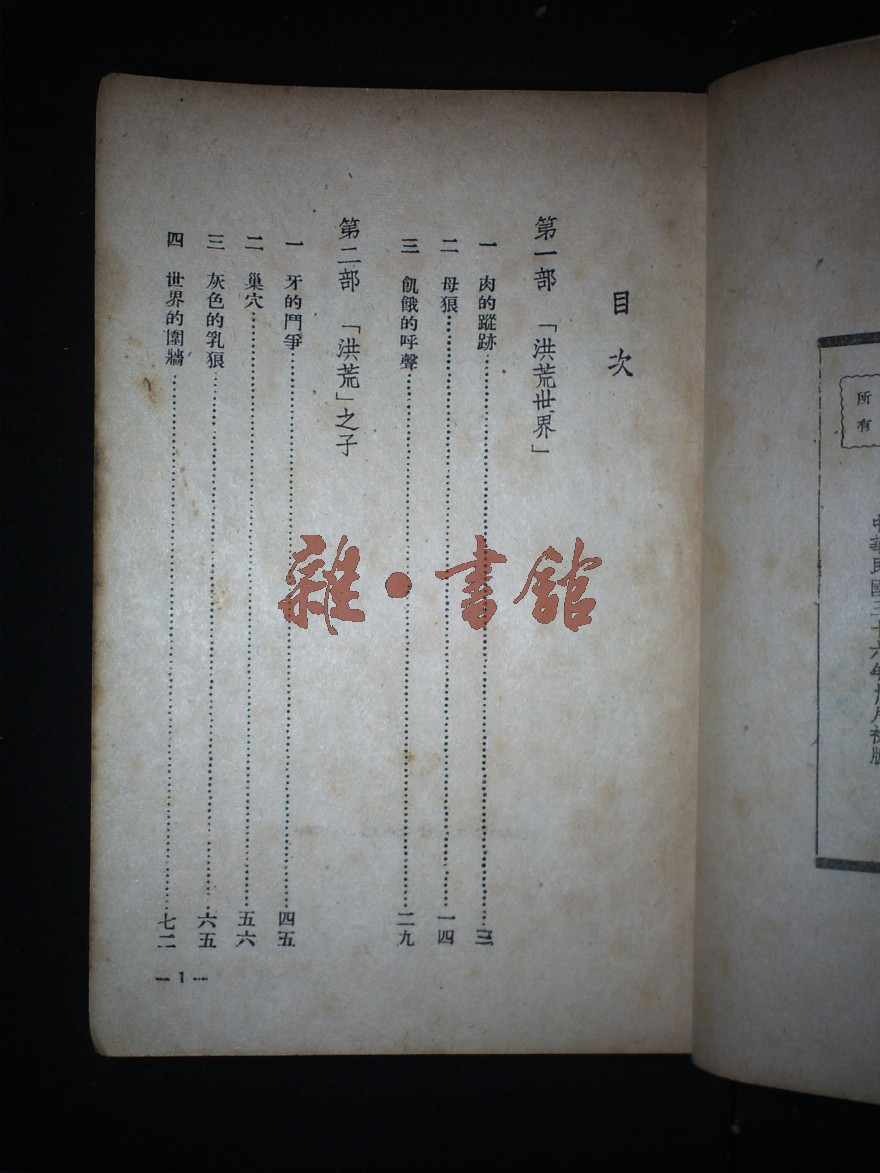 目次
第一部 「洪荒世界」
一 肉的蹤跡 三
二 母狼 一四
三 飢餓的呼聲 二九
第二部 「洪荒」之子
一 牙的鬥爭 四五
二 巢穴 五六
三 灰色的乳狼 六五
四 世界的圍牆 七二
— 1 —
雜·書館
所有
中華民國三十六年九月初版